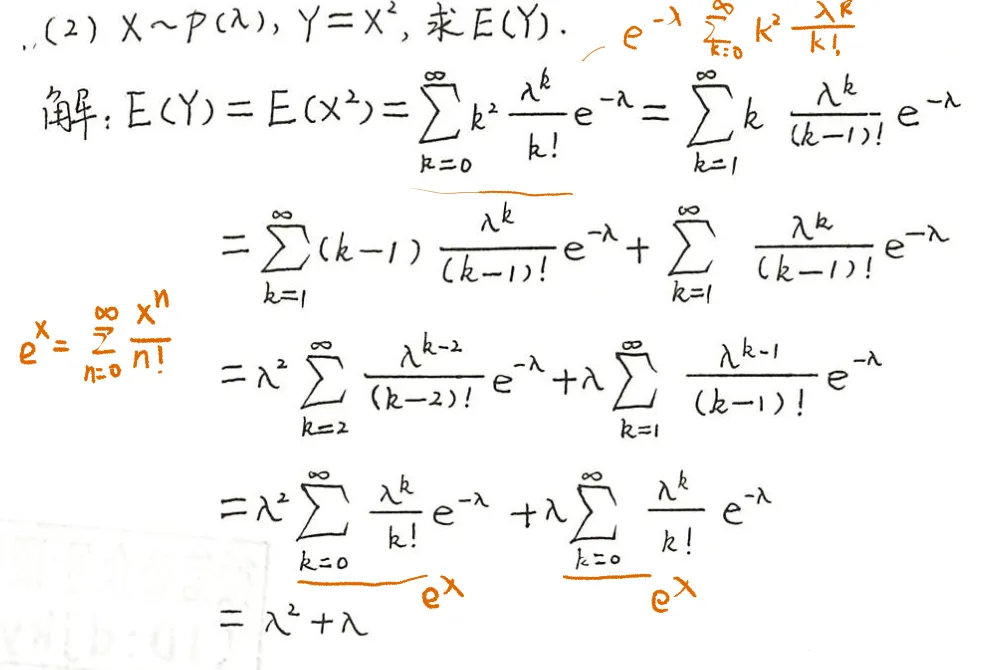 (2) X~P(λ), Y=X², 求E(Y). e^{-λ} \sum_{k=0}^{∞} k² \frac{λ^k}{k!}
解: E(Y) = E(X²) = \sum_{k=0}^{∞} k² \frac{λ^k}{k!} e^{-λ} = \sum_{k=1}^{∞} k \frac{λ^k}{(k-1)!} e^{-λ}
= \sum_{k=1}^{∞} (k-1) \frac{λ^k}{(k-1)!} e^{-λ} + \sum_{k=1}^{∞} \frac{λ^k}{(k-1)!} e^{-λ}
e^x = \sum_{n=0}^{∞} \frac{x^n}{n!}
= λ² \sum_{k=2}^{∞} \frac{λ^{k-2}}{(k-2)!} e^{-λ} + λ \sum_{k=1}^{∞} \frac{λ^{k-1}}{(k-1)!} e^{-λ}
= λ² \sum_{k=0}^{∞} \frac{λ^k}{k!} e^{-λ} + λ \sum_{k=0}^{∞} \frac{λ^k}{k!} e^{-λ}
e^λ e^λ
= λ² + λ